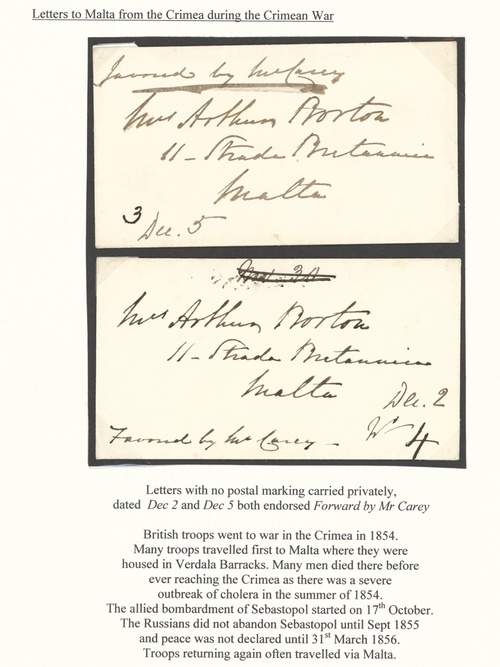 Letters to Malta from the Crimea during the Crimean War
Favored by Mr Carey
Mrs Arthur Borton
11 - Strada Britannica
Malta
3
Dec. 5
Nov. 30
Mrs Arthur Borton
11 - Strada Britannica
Malta
Dec. 2
4
Favored by Mr Carey -
Letters with no postal marking carried privately,
dated Dec 2 and Dec 5 both endorsed Forward by Mr Carey
British troops went to war in the Crimea in 1854.
Many troops travelled first to Malta where they were
housed in Verdala Barracks. Many men died there before
ever reaching the Crimea as there was a severe
outbreak of cholera in the summer of 1854.
The allied bombardment of Sebastopol started on 17th October.
The Russians did not abandon Sebastopol until Sept 1855
and peace was not declared until 31st March 1856.
Troops returning again often travelled via Malta.